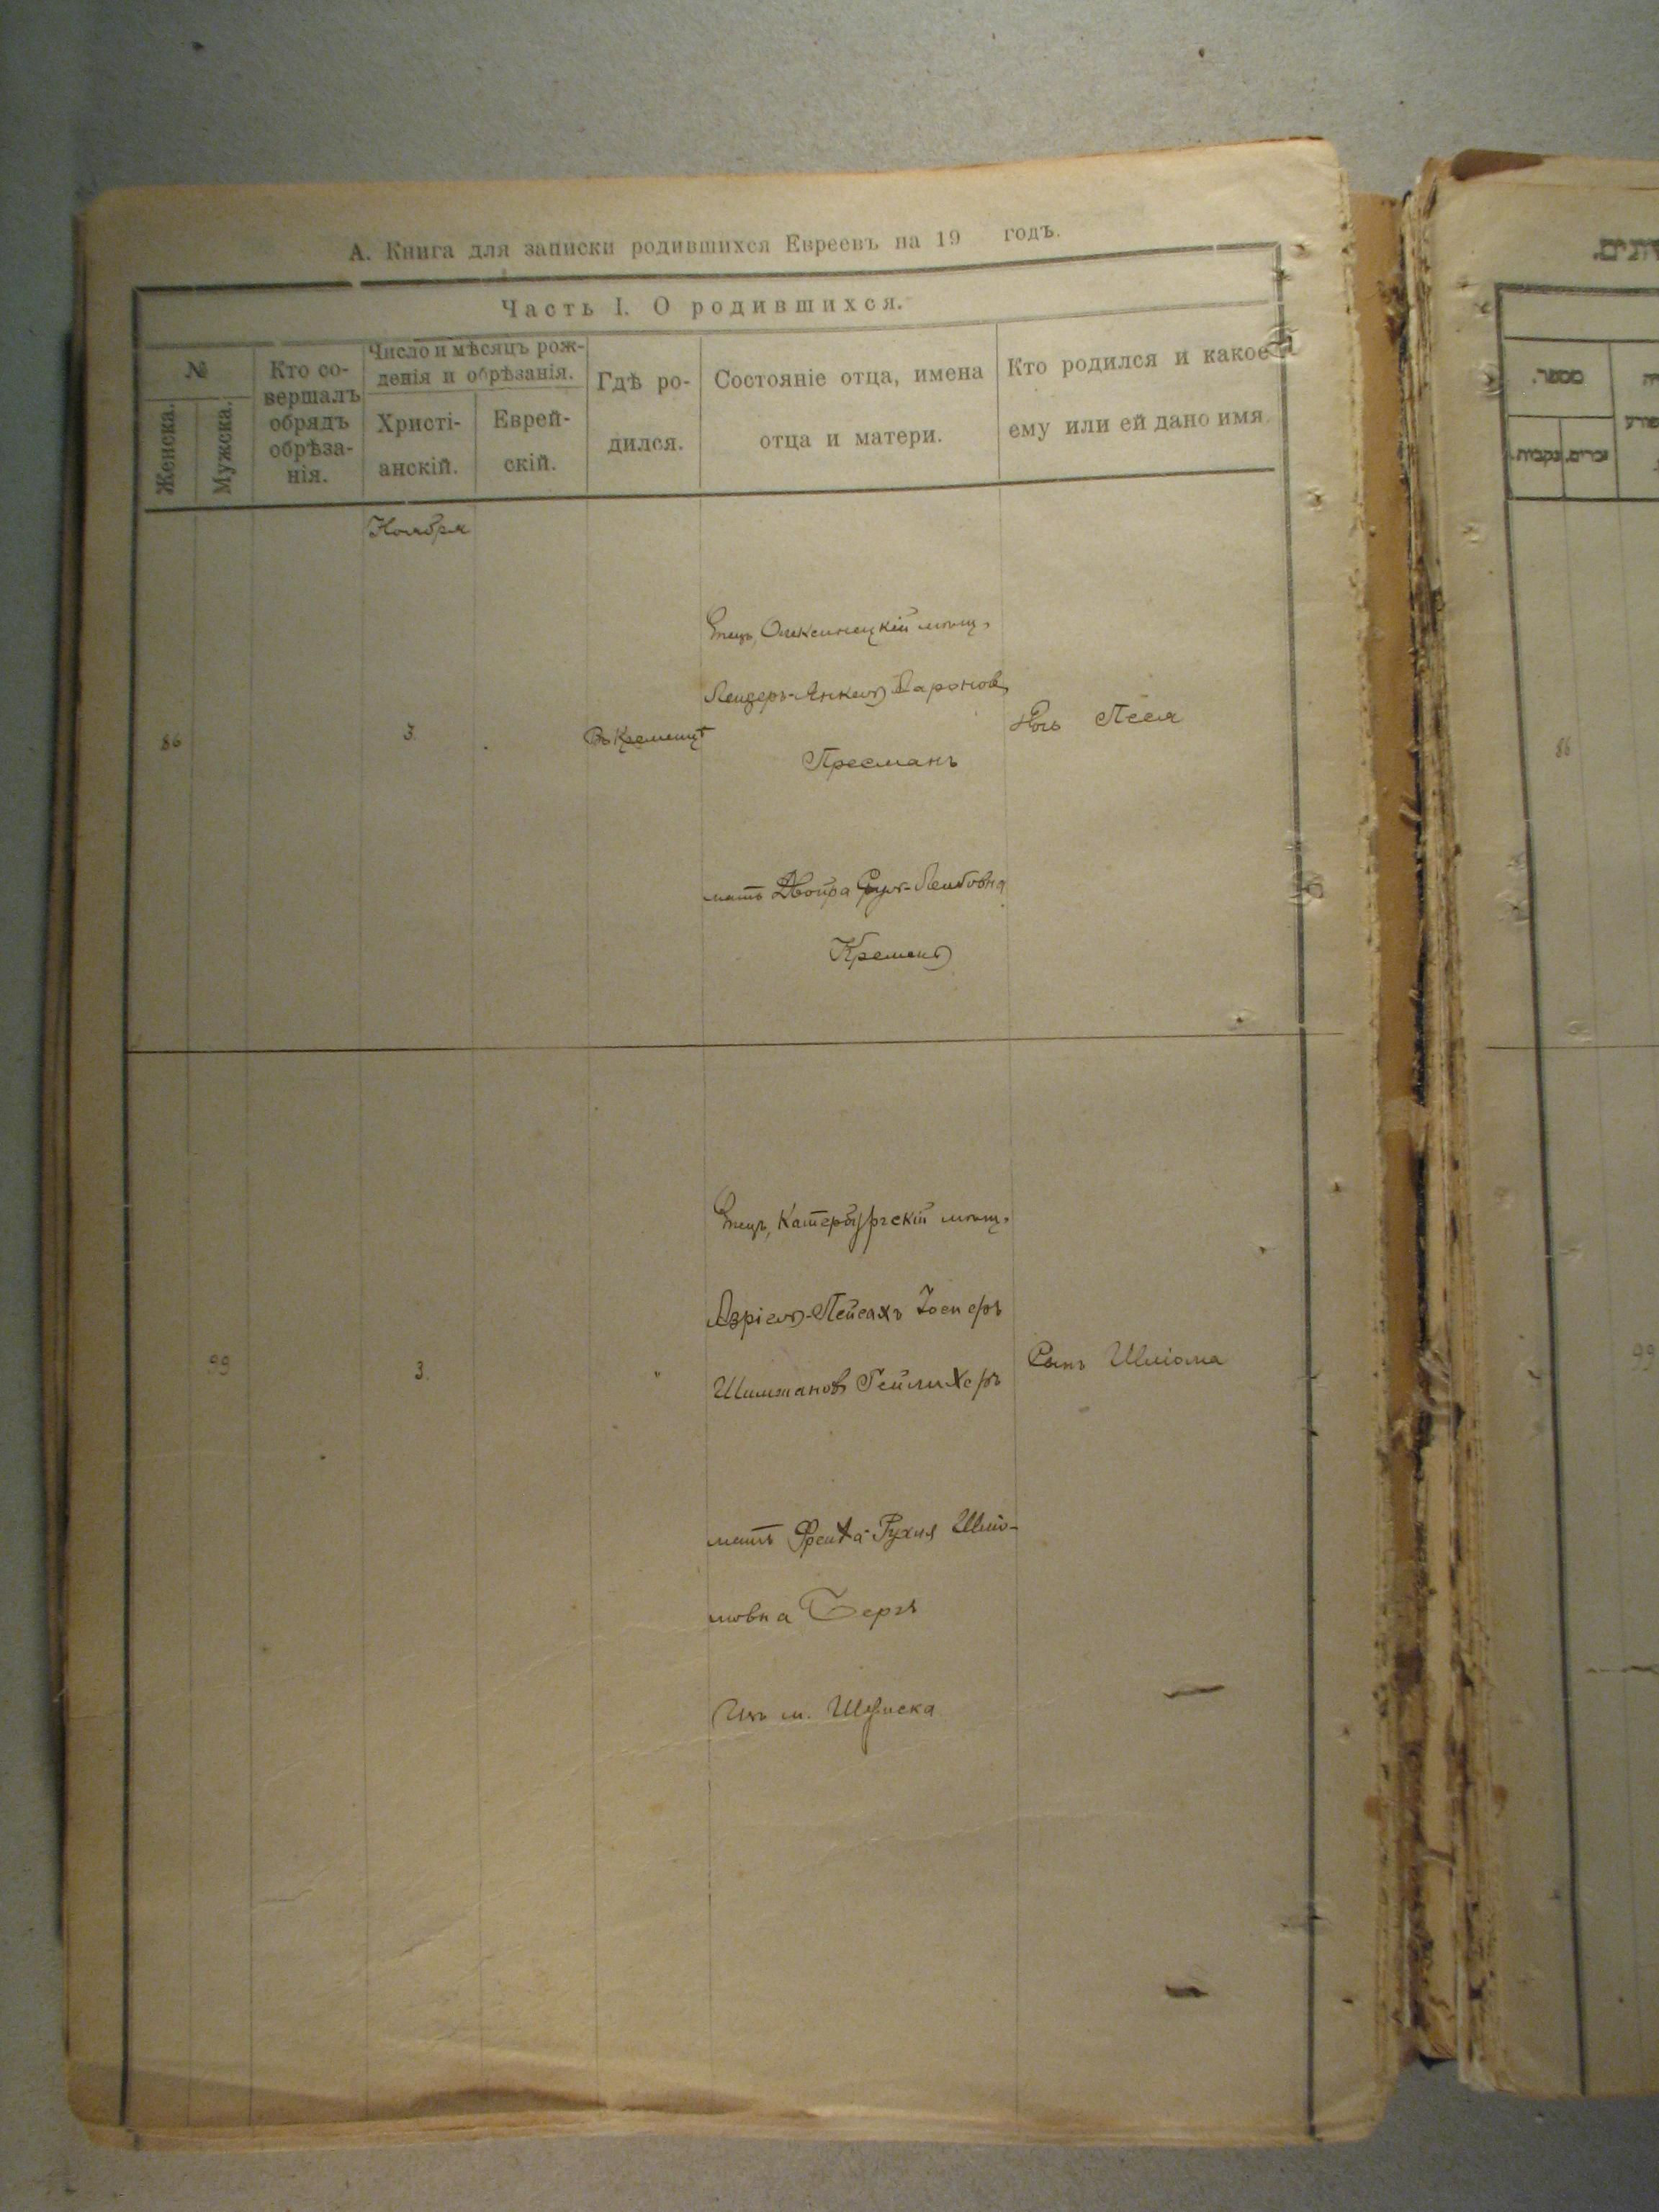 А. Книга для записки родившихся Евреевъ на 19 годъ.
Часть I. О родившихся.
№
Женска.
Мужска.
Кто со-
вершалъ
обрядъ
обрѣза-
нія.
Число и мѣсяцъ рож-
денія и обрѣзанія.
Христі-
анскій.
Еврей-
скій.
Гдѣ ро-
дился.
Состояніе отца, имена
отца и матери.
Кто родился и какое
ему или ей дано имя.
Ноября
86
3.
Въ Кременцѣ
Отецъ, Олексинецкій мѣщ.
Лейзеръ-Янкель Ааронов.
Пресманъ
мать Двойра Лейбовна
Кремень
Дочь Песя
99
3.
"
Отецъ, Катербургскій мѣщ.
Азріель-Пейсахъ Іосиферъ
Шимшановъ Гейлихеръ
мать Фрейда-Рухля Шліо-
мовна Бергъ
Изъ м.
Сынъ Шліома
מספר.
זכרים.
נקבות.
86
99